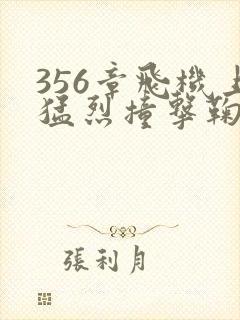 356章飛機上
猛烈撞擊鞠
張利月